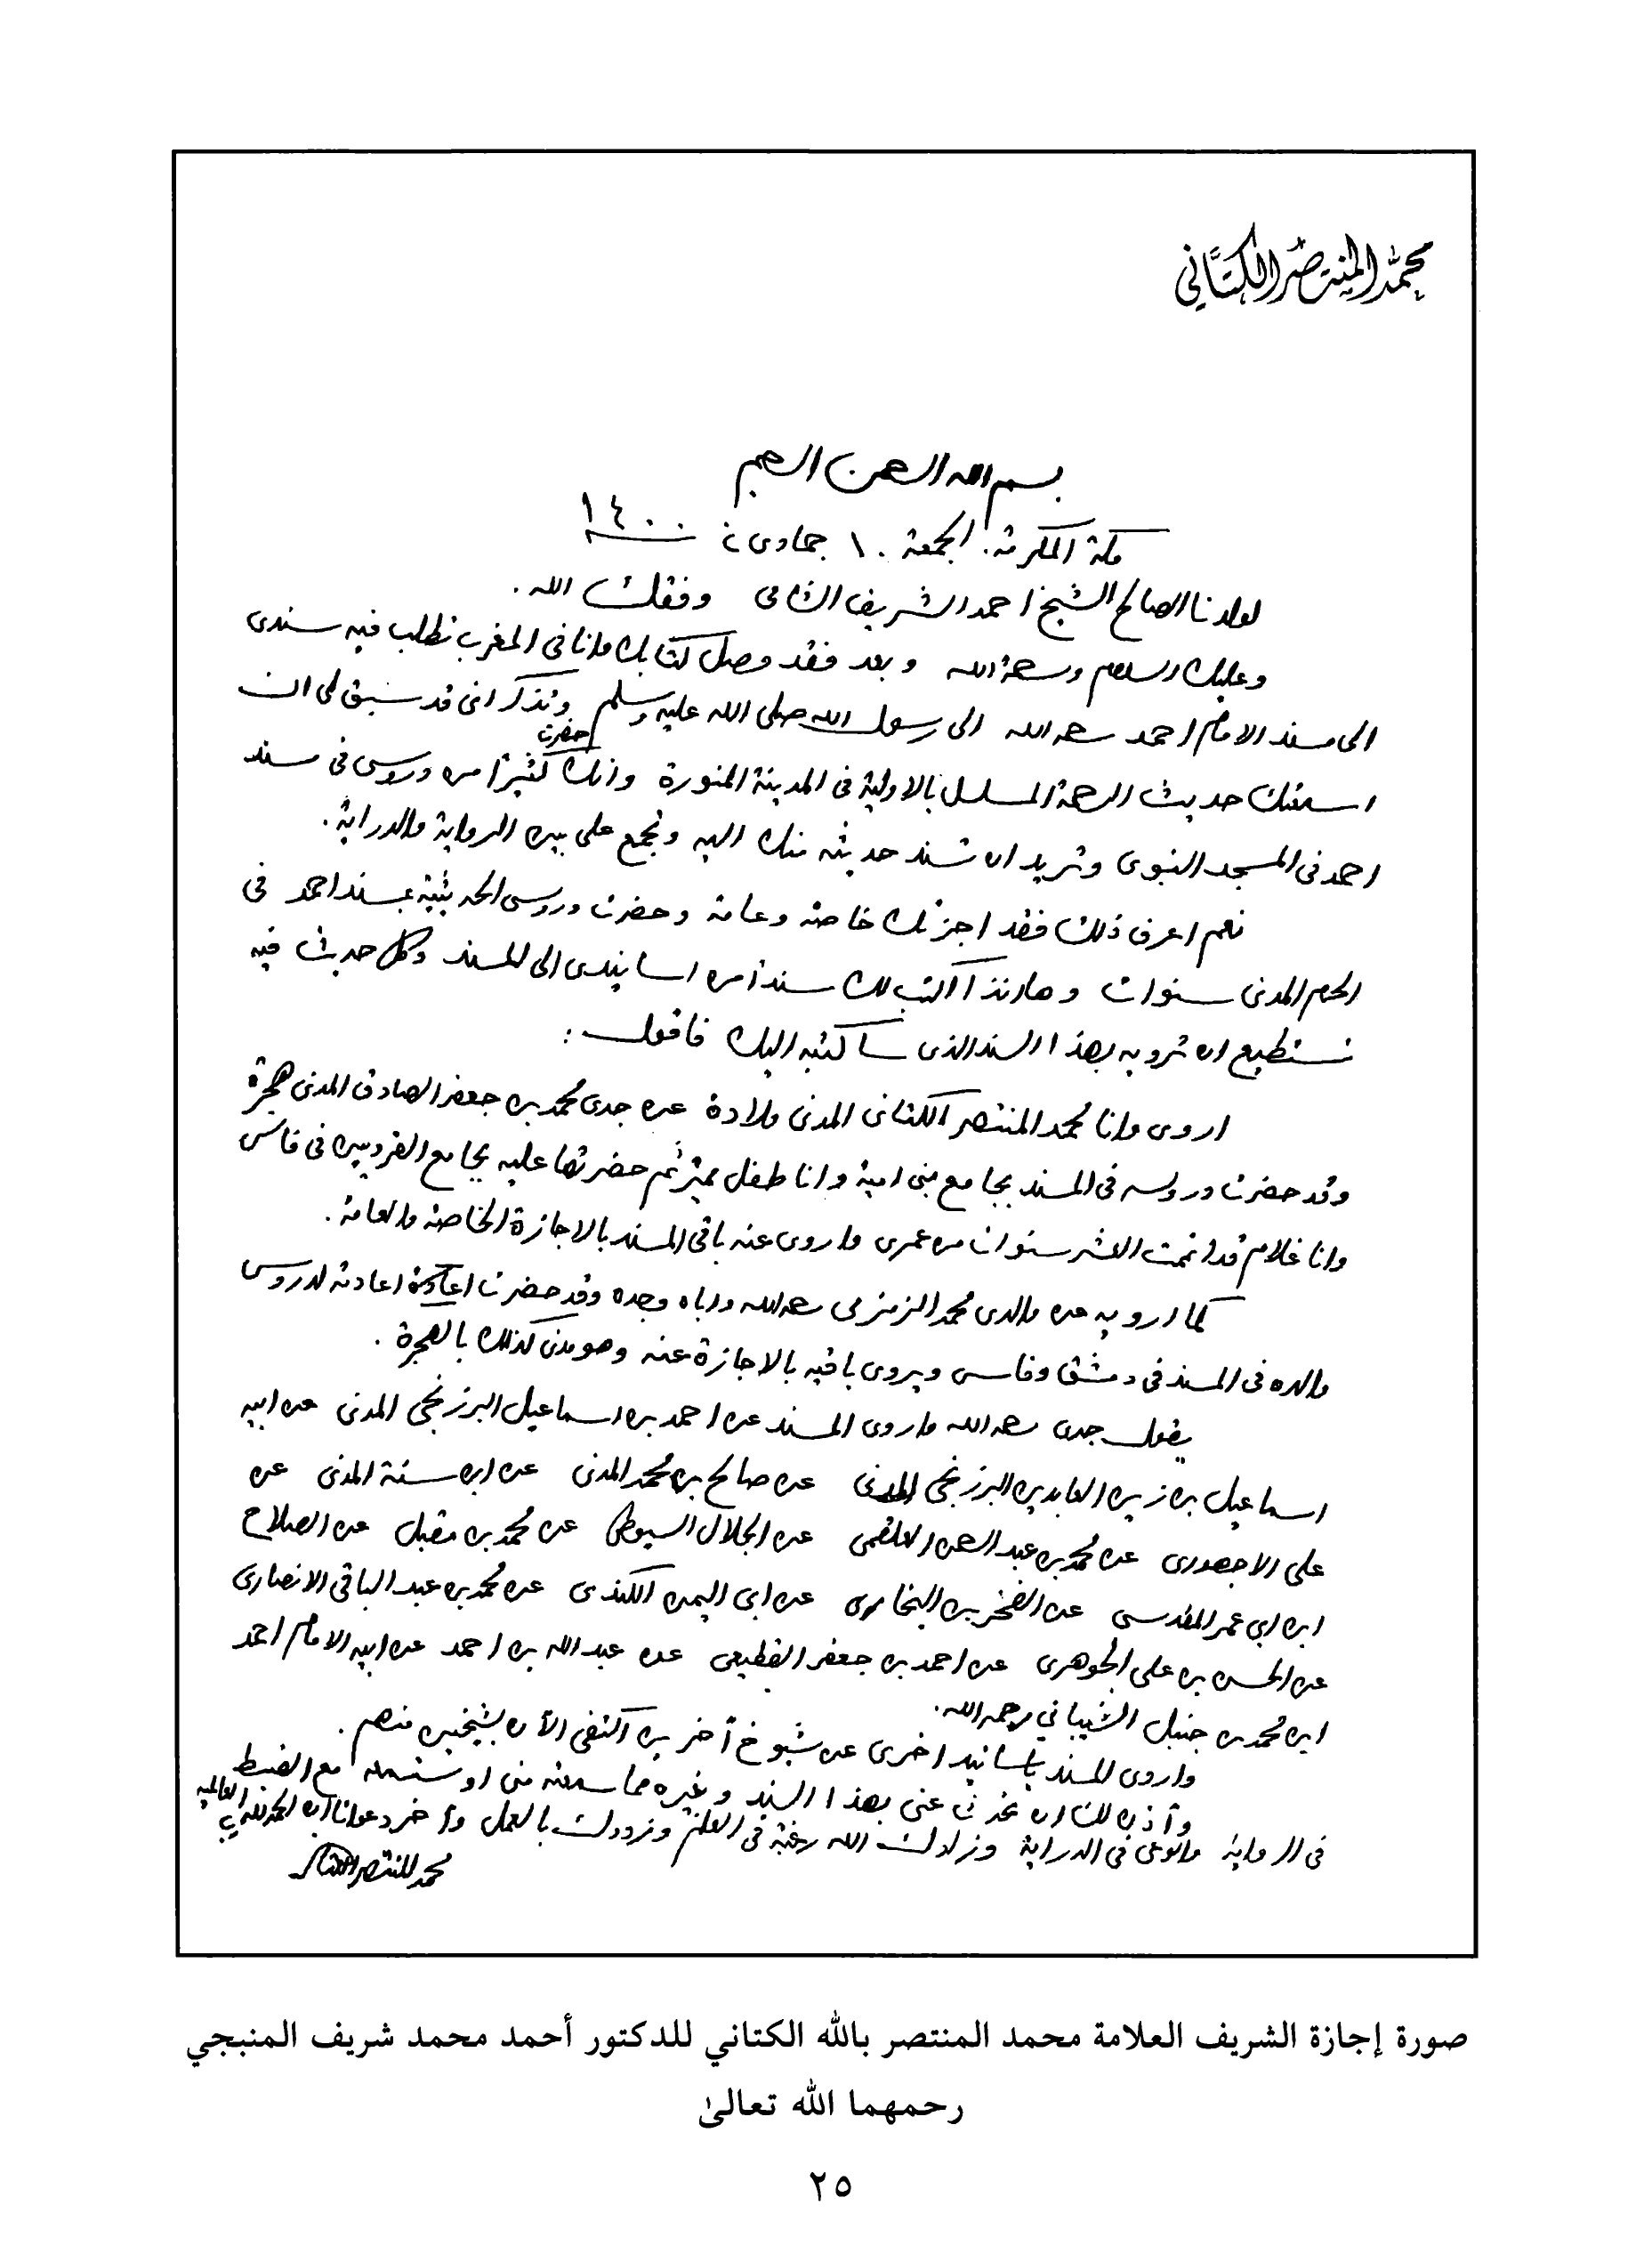 محمد المنتصر الكتاني
بسم الله الرحمن الرحيم
مكة المكرمة. الجمعة ١٠ جمادى ٢ ١٤٠٠
لولدنا الصالح الشيخ احمد الشريف وفقك الله.
وعليك السلام ورحمة الله وبعد فقد وصل كتابك وانا فى المغرب تطلب فيه سندى
الى مسند الامام احمد رحمه الله الى رسول الله صلى الله عليه وسلم وتذكر انى قد سبق لى ان
اسمعتك حديث الرحمة المسلسل بالاولية فى المدينة المنورة وانك حضرت كثيرًا من دروسى فى مسند
احمد فى المسجد النبوى وتريد ان تسند حديثه منك اليه وتجمع على بين الرواية والدراية.
نعم اعرف ذلك فقد اجزتك خاصة وعامة وحضرت دروسى الحديثية بمسند احمد فى
الحرم المدنى سنوات وهانذا اكتب لك سندًا من اسانيدى الى المسند وكل حديث فيه
تستطيع ان ترويه بهذا السند الذى سأكتبه اليك فاقول :
اروى وانا محمد المنتصر الكتانى المدنى ولادة عن جدى محمد بن جعفر الصادق المدنى هجرة
وقد حضرت دروسه فى المسند بجامع بنى امية وانا طفل مميز ثم حضرتها عليه بجامع القرويين فى فاس
وانا غلام قد اتممت العشر سنوات من عمرى واروى عنه باقى المسند بالاجازة الخاصة والعامة.
كما ارويه عن والدى محمد الزمزمى رحمه الله واباه وجده وقد حضرت اعادة اعادته لدروس
والده فى المسند فى دمشق وفاس ويروى باقيه بالاجازة عنه وهو مدنى كذلك بالهجرة .
يقول جدى رحمه الله واروى المسند عن احمد بن اسماعيل البرزنجى المدنى عن ابيه
اسماعيل بن زين العابدين البرزنجى المدنى عن صالح بن محمد المدنى عن ابن سنة المدنى عن
على الاجهورى عن محمد بن عبد الرحمن العلقمى عن الجلال السيوطى عن محمد بن مقبل عن الصلاح
ابن ابى عمر المقدسى عن الفخر بن البخارى عن ابى اليمن الكندى عن محمد بن عبد الباقى الانصارى
عن الحسن بن على الجوهرى عن احمد بن جعفر القطيعى عن عبد الله بن احمد عن ابيه الامام احمد
ابن محمد بن حنبل الشيبانى رحمه الله.
واروى المسند باسانيد اخرى عن شيوخ آخرين اكتفى الآن بشيخين منهم .
وآذن لك ان تحدث عنى بهذا السند وغيره مما سمعته منى او ستسمعه مع الضبط
فى الرواية والوعى فى الدراية وزادك الله رغبة فى العلم وزودك بالعمل وآخر دعوانا ان الحمد لله رب العالمين
محمد المنتصر الكتانى
صورة إجازة الشريف العلامة محمد المنتصر بالله الكتاني للدكتور أحمد محمد شريف المنبجي
رحمهما الله تعالىٰ
٢٥